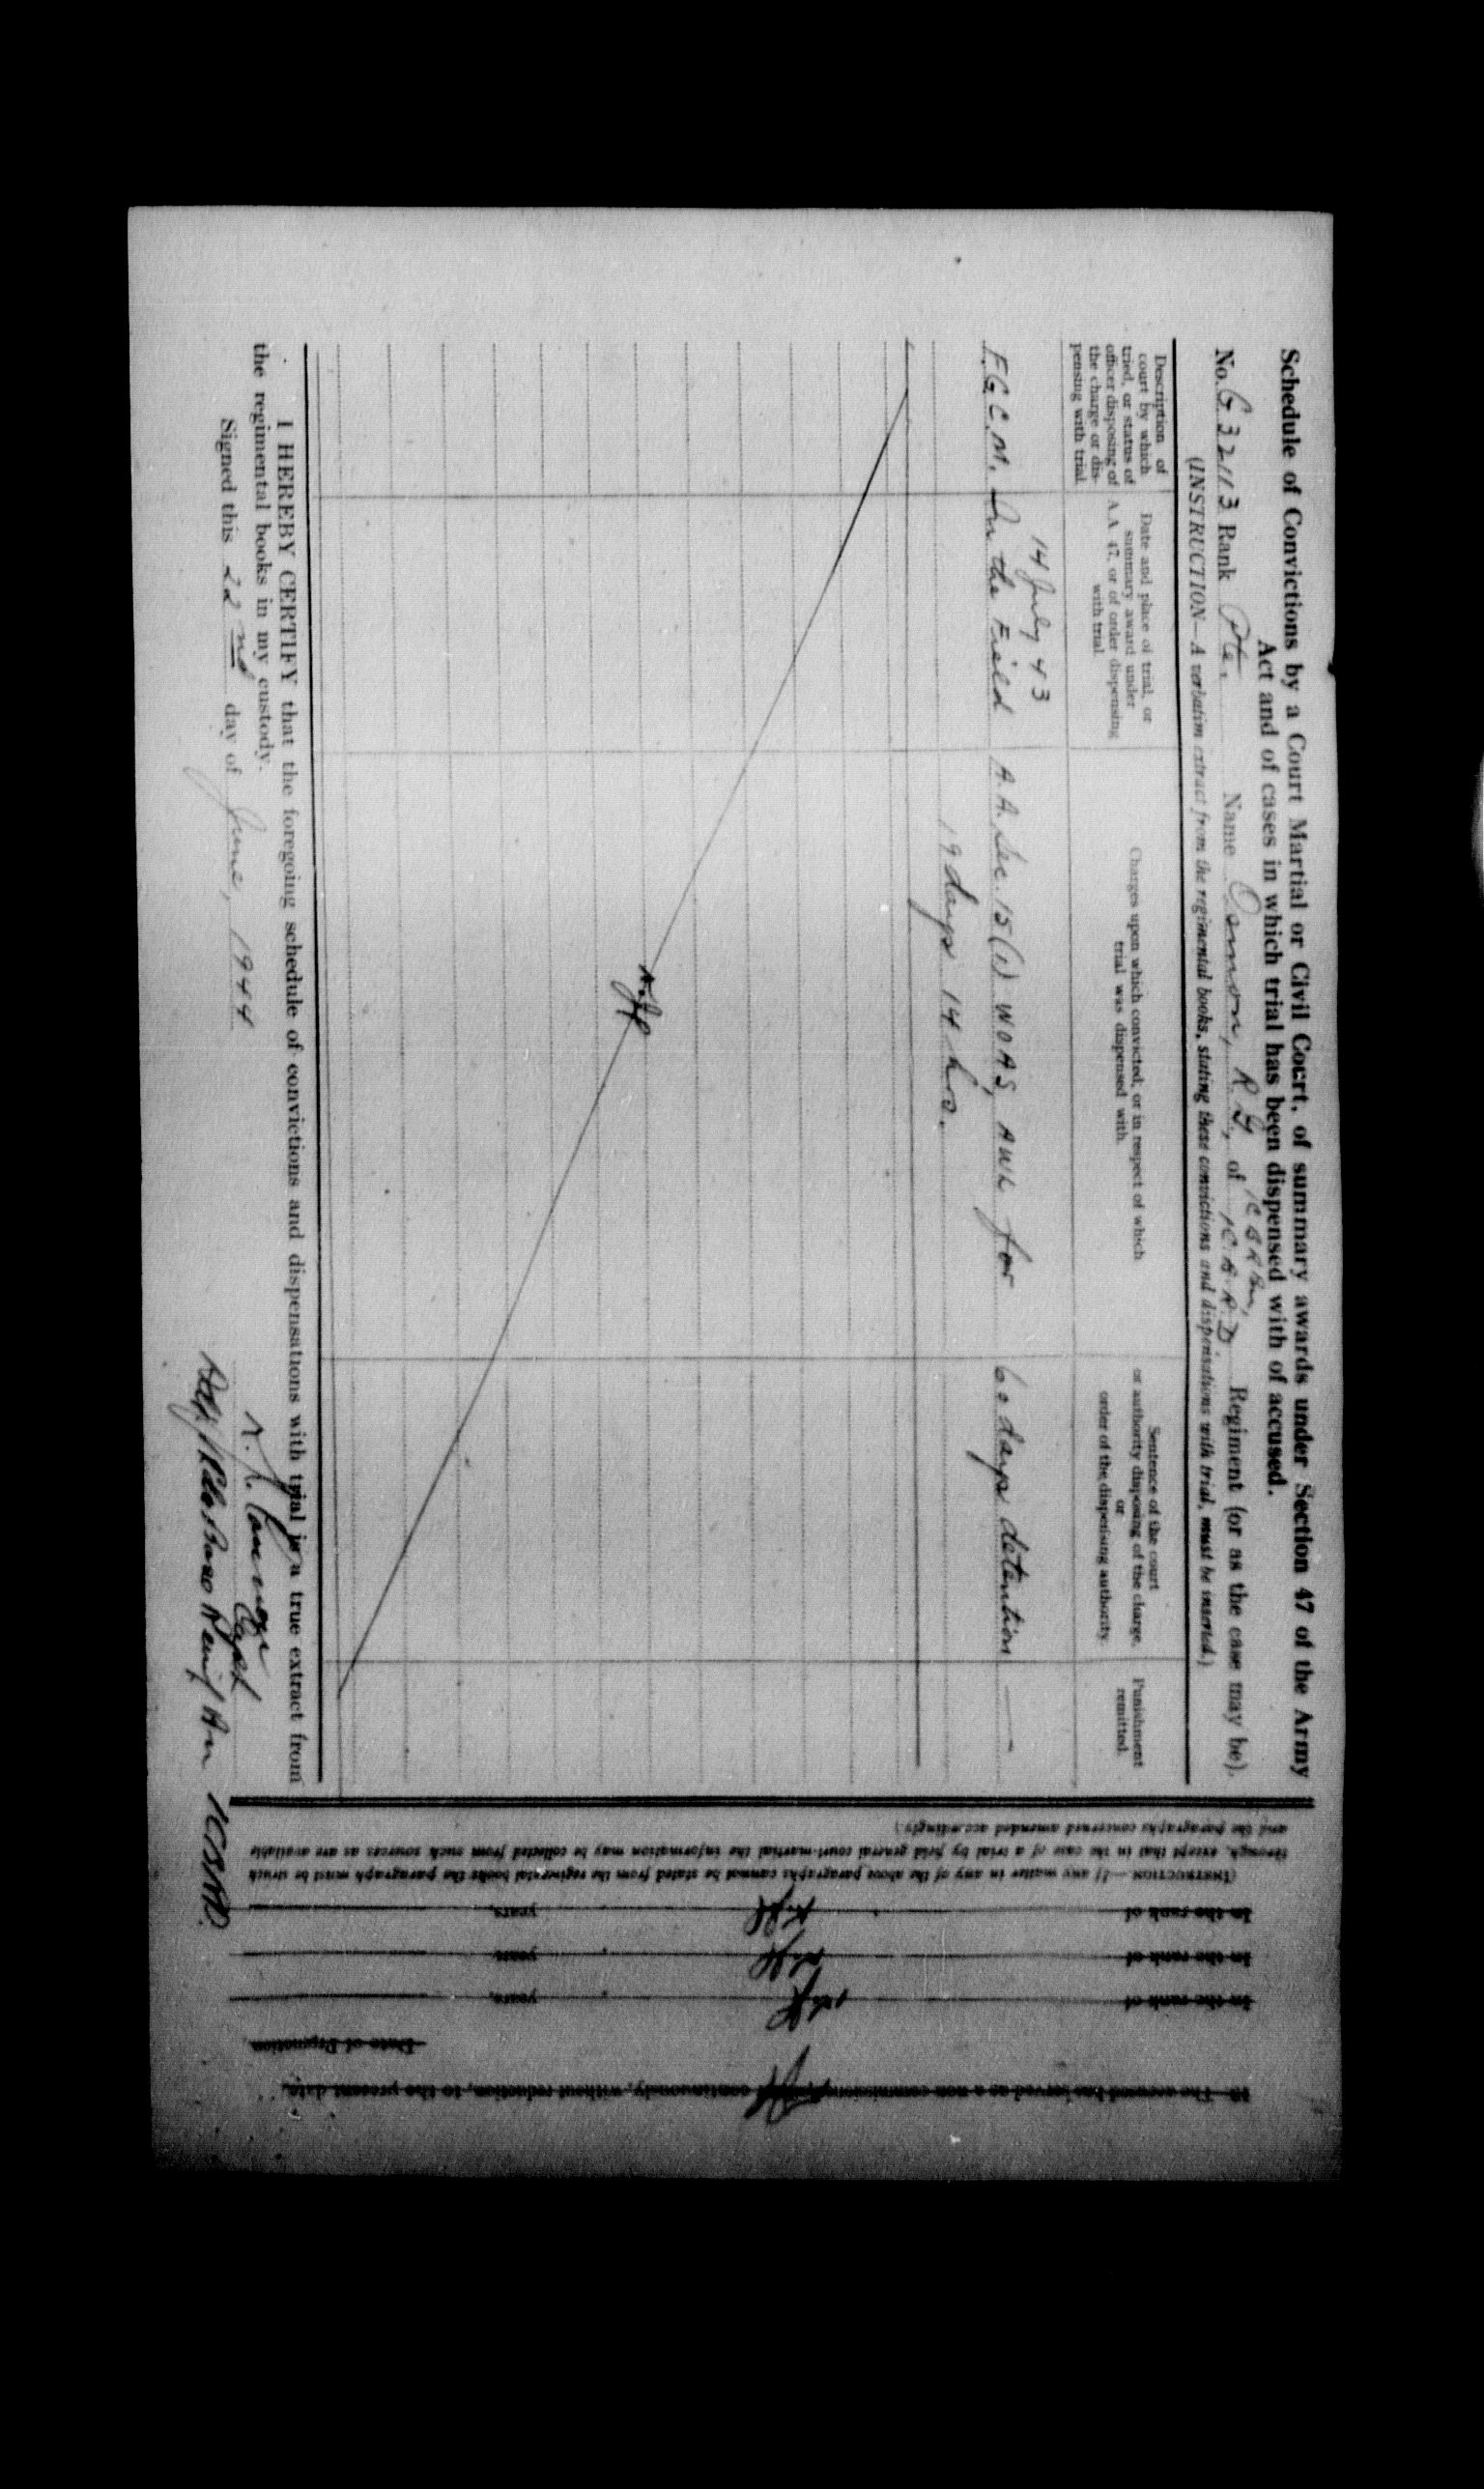 Schedule of Convictions by a Court Martial or Civil Court, of summary awards under Section 47 of the Army
Act and of cases in which trial has been dispensed with of accused.
No. G 32113 Rank Pte. Name Osmon, R G, of Regiment (or as the case may be).
(INSTRUCTION—A verbatim extract from the regimental books, stating these convictions and dispensations with trial, must be inserted.)
Description of
court by which
tried, or status of
officer disposing of
the charge or dis-
pensing with trial
Date and place of trial, or
summary award under
A.A. 47, or of order dispensing
with trial.
Charges upon which convicted, or in respect of which
trial was dispensed with.
Sentence of the court
or authority disposing of the charge,
or
order of the dispensing authority.
Punishment
remitted.
14 July 43
F.G.C.M. In the Field A.A. Sec. 15(1) WOAS, AWL for 60 days detention
19 days 14 hrs.
I HEREBY CERTIFY that the foregoing schedule of convictions and dispensations with trial is a true extract from
the regimental books in my custody.
Signed this 22nd day of June, 1944
Capt
10. The accused has served as a non-commissioned continuously, without reduction, to the present date.
Date of Promotion
In the rank of years,
In the rank of years
In the rank of years,
(INSTRUCTION.—If any matter in any of the above paragraphs cannot be stated from the regimental books the paragraph must be struck
through, except that in the case of a trial by field general court-martial the information may be collected from such sources as are available
and the paragraphs concerned amended accordingly.)